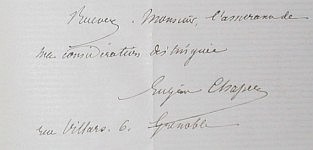 Recevez, Monsieur, l'assurance de
ma considération distinguée
Eugène Chaper
rue Villars. 6. Grenoble